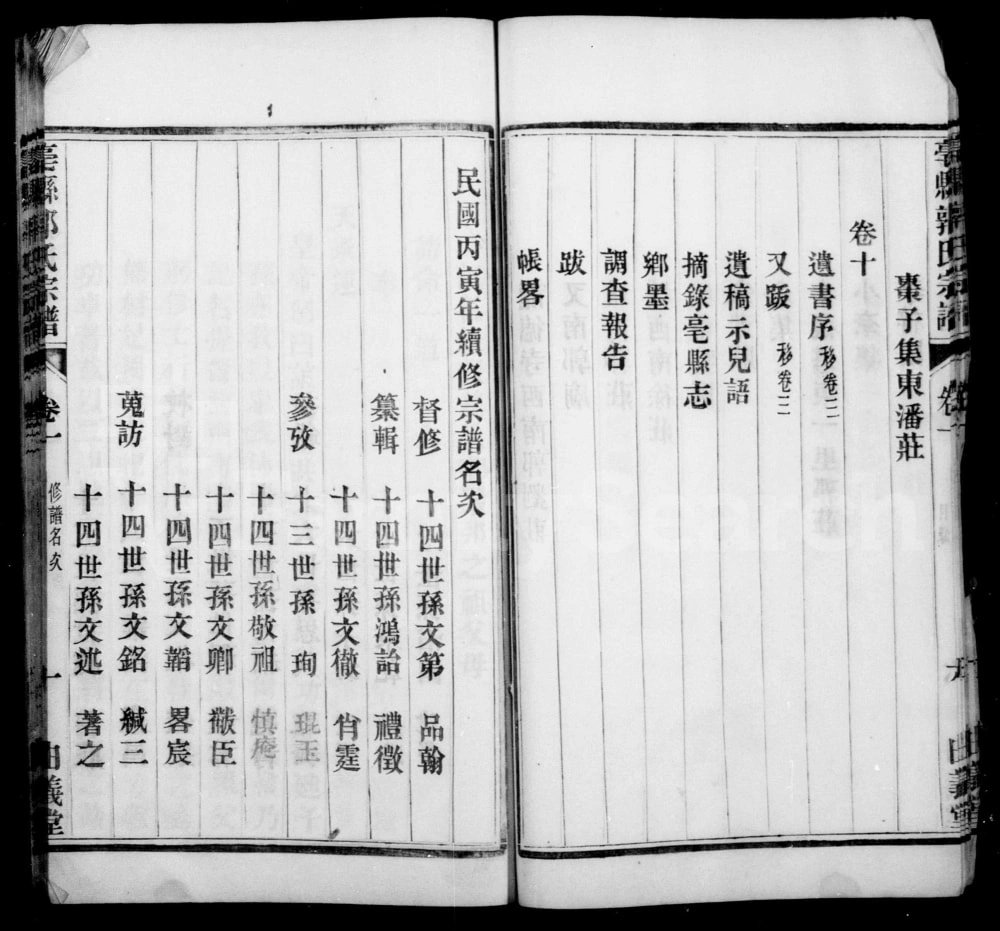 棗子集東潘莊
卷十
遺書序 移卷二
又跋 移卷二
遺稿示兒語
摘錄亳縣志
鄉墨
調查報告
跋
帳畧
由義堂
民國丙寅年續修宗譜名次
督修 十四世孫文第 品翰
纂輯 十四世孫鴻詒 禮徵
十四世孫文徹 肖霆
參攷 十三世孫 珣 琨玉
十四世孫敬祖 慎庵
十四世孫文卿 黻臣
十四世孫文韜 畧宸
蒐訪 十四世孫文銘 緘三
十四世孫文述 著之
亳縣郭氏宗譜 卷一 修譜名次 一 由義堂